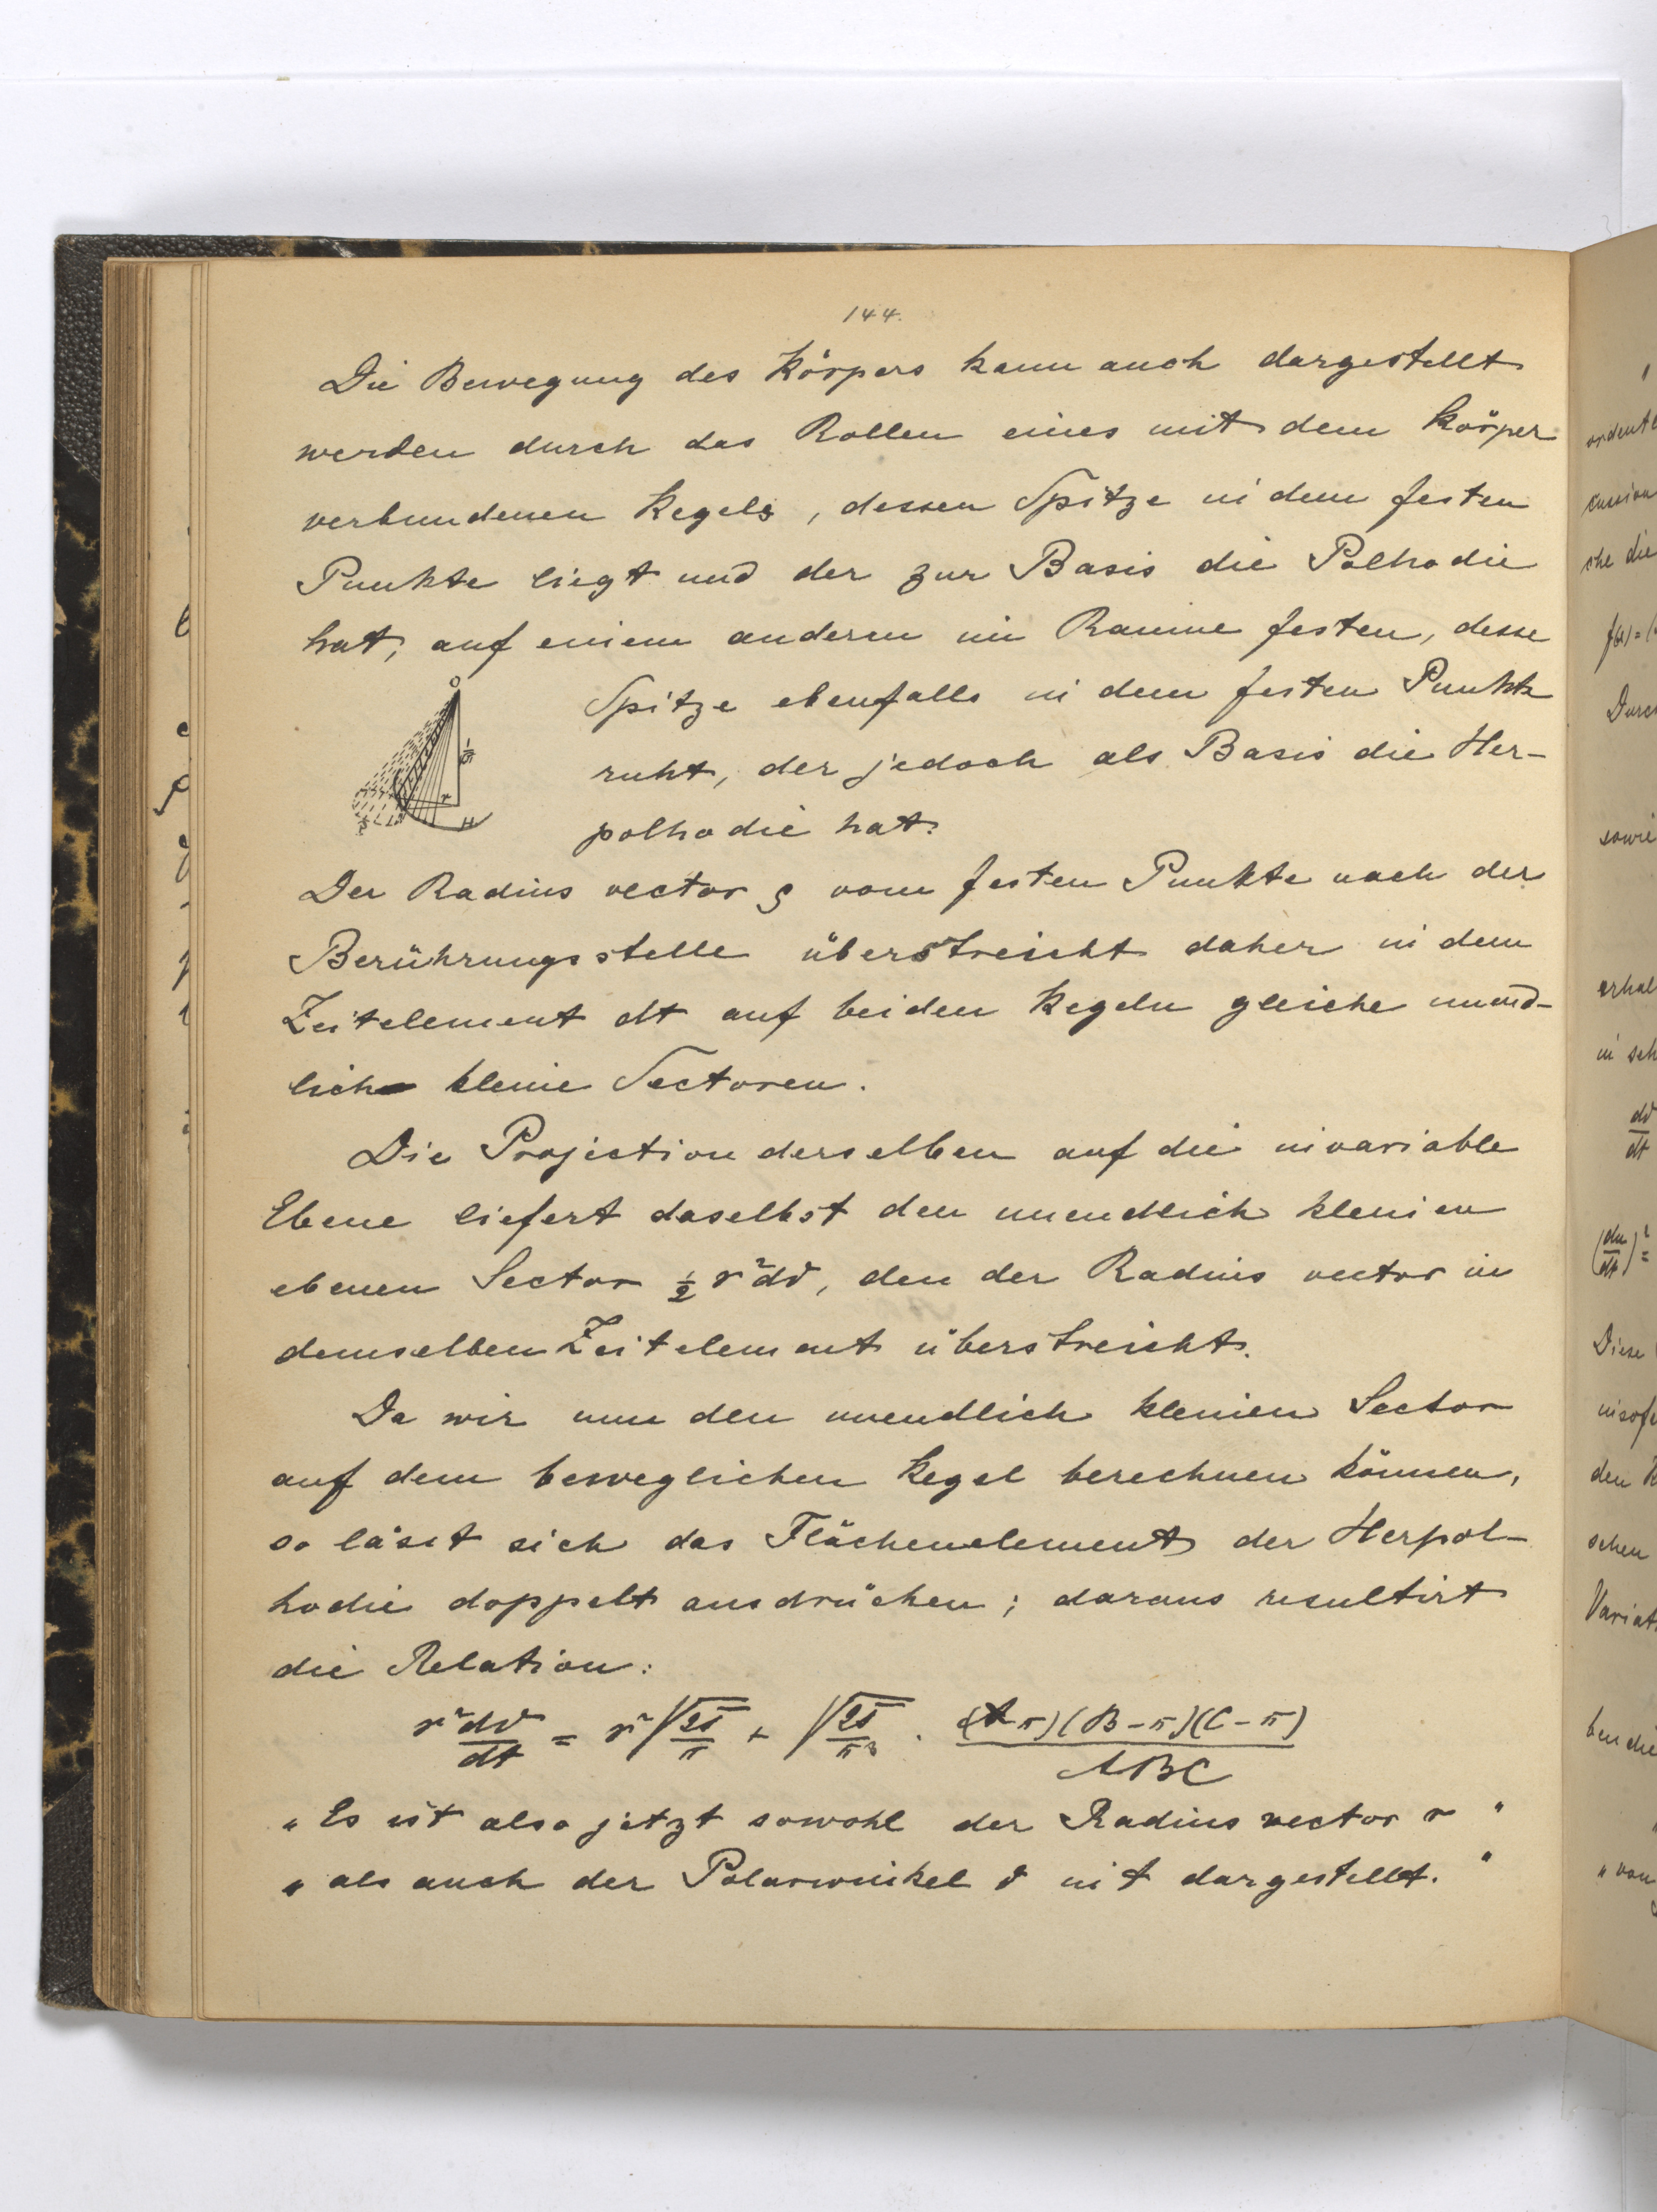 144.
Die Bewegung des Körpers kann auch dargestellt
werden durch das Rollen eines mit dem Körper
verbundenen Kegels, dessen Spitze in dem festen
Punkte liegt und der zur Basis die Polhodie
hat, auf einem anderen im Raume festen, desse
Spitze ebenfalls in dem festen Punkte
ruht, der jedoch als Basis die Her-
polhodie hat.
O
r
H
Der Radius vector ρ vom festen Punkte nach der
Berührungsstelle überstreicht daher in dem
Zeitelement dt auf beiden Kegeln gleiche unend-
lich kleine Sectoren.
Die Projection derselben auf die invariable
Ebene liefert daselbst den unendlich kleinen
ebenen Sector ½ r²dϑ, den der Radius vector in
demselben Zeitelement überstreicht.
Da wir nun den unendlich kleinen Sector
auf dem beweglichen Kegel berechnen können,
so lässt sich das Flächenelement der Herpol-
hodie doppelt ausdrücken; daraus resultirt
die Relation:
r²dϑ/dt = r²√(2T/π) + √(2T/π³) · (A-π)(B-π)(C-π)/ABC
"Es ist also jetzt sowohl der Radius vector r "
"als auch der Polarwinkel ϑ in t dargestellt."
ordente
cussion
che die
f(s) = (
Durc
sowie
erhal
in seh
dϑ/dt
(du/dt)² =
Diese
insofe
den K
schen
Variat
ben die
" von